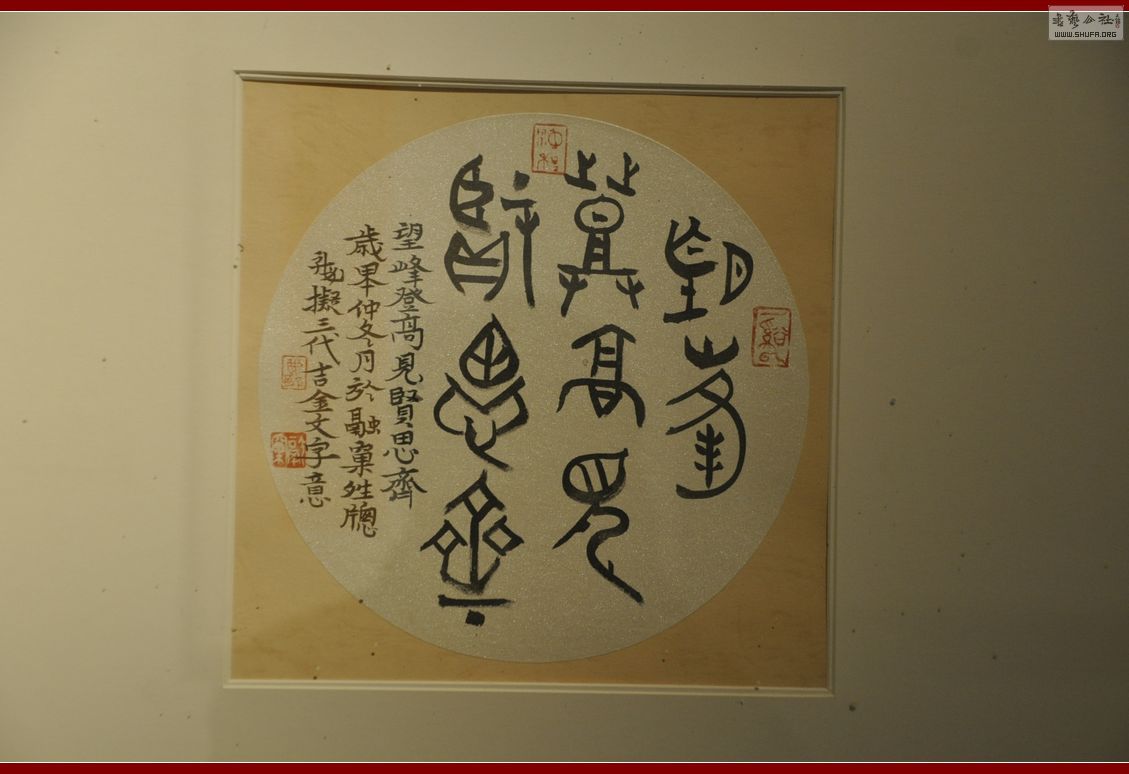 望峰
登高見
賢思齊
望峰登高見賢思齊
歲畢仲冬月於融窠
擬三代吉金文字意
书艺公社
WWW.SHUFA.ORG